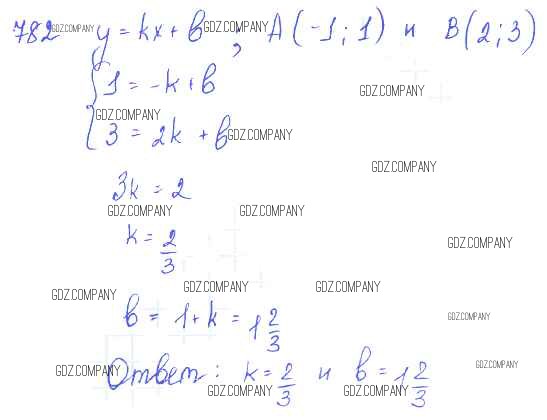 782 GDZ.COMPANY y = kx + b GDZ.COMPANY ; A(-1; 1) и B(2; 3)
1 = -k + b
GDZ.COMPANY
GDZ.COMPANY
3 = 2k + b GDZ.COMPANY
GDZ.COMPANY
3k = 2
GDZ.COMPANY GDZ.COMPANY
k = 2/3
GDZ.COMPANY
GDZ.COMPANY GDZ.COMPANY GDZ.COMPANY
b = 1 + k = 1 2/3
GDZ.COMPANY
GDZ.COMPANY GDZ.COMPANY
Ответ: k = 2/3 и b = 1 2/3
GDZ.COMPANY GDZ.COMPANY